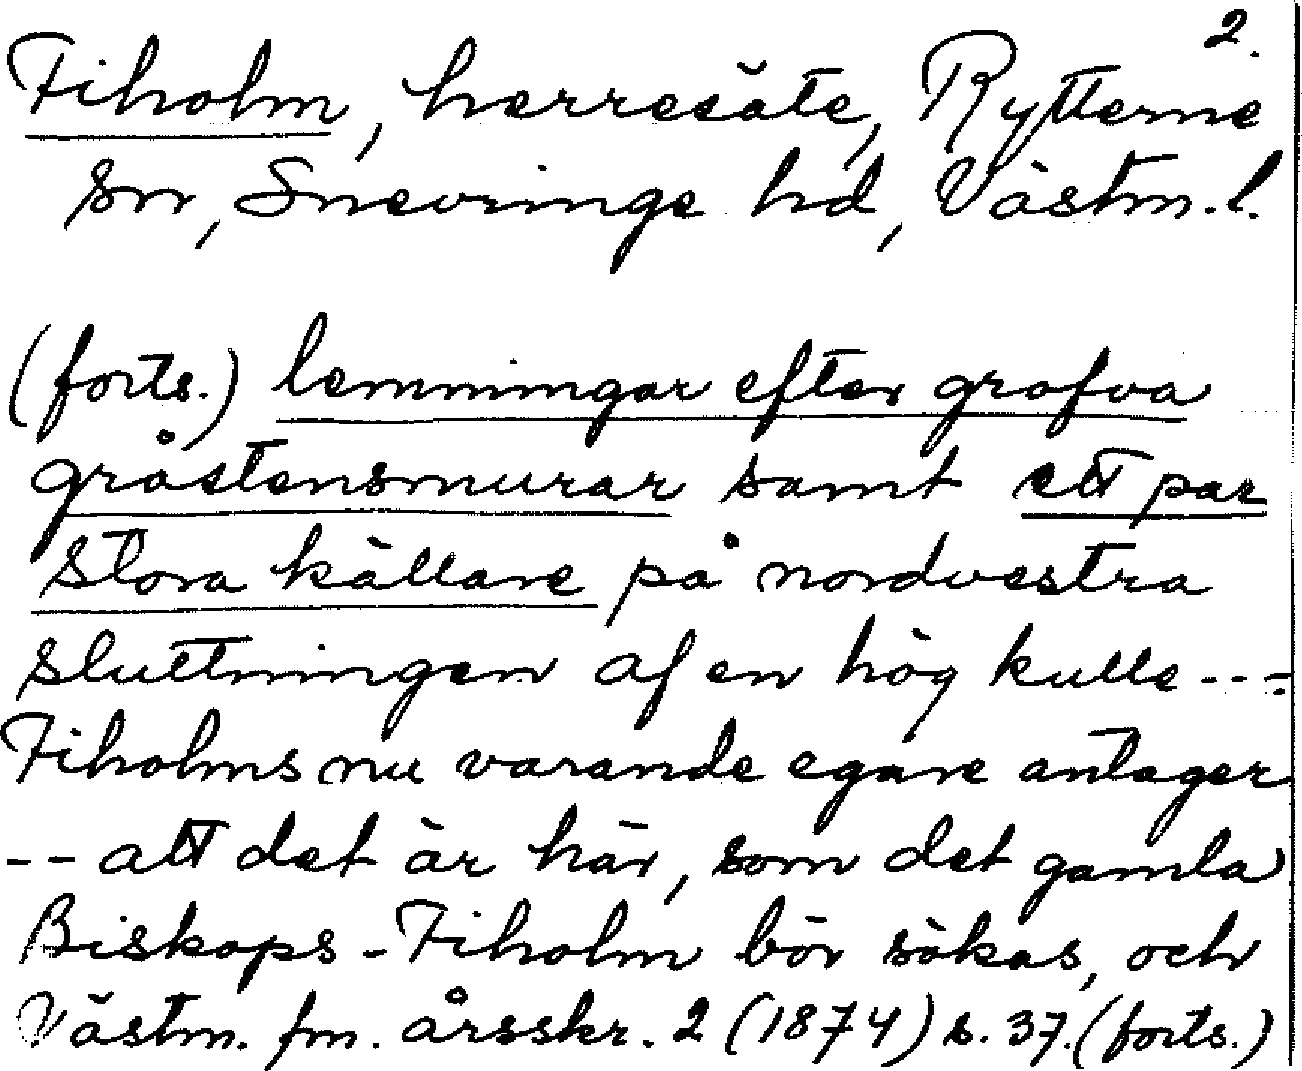 2.
Fiholm, herresäte, Rytterne
sn, Snevringe hd, Västm. l.
(forts.) lemningar efter grofva
gråstensmurar samt ett par
stora källare på nordvestra
sluttningen af en hög kulle ---
Fiholms nu varande egare antager
-- att det är här, som det gamla
Biskops-Fiholm bör sökas, och
Västm. fm. årsskr. 2 (1874) s. 37. (forts.)